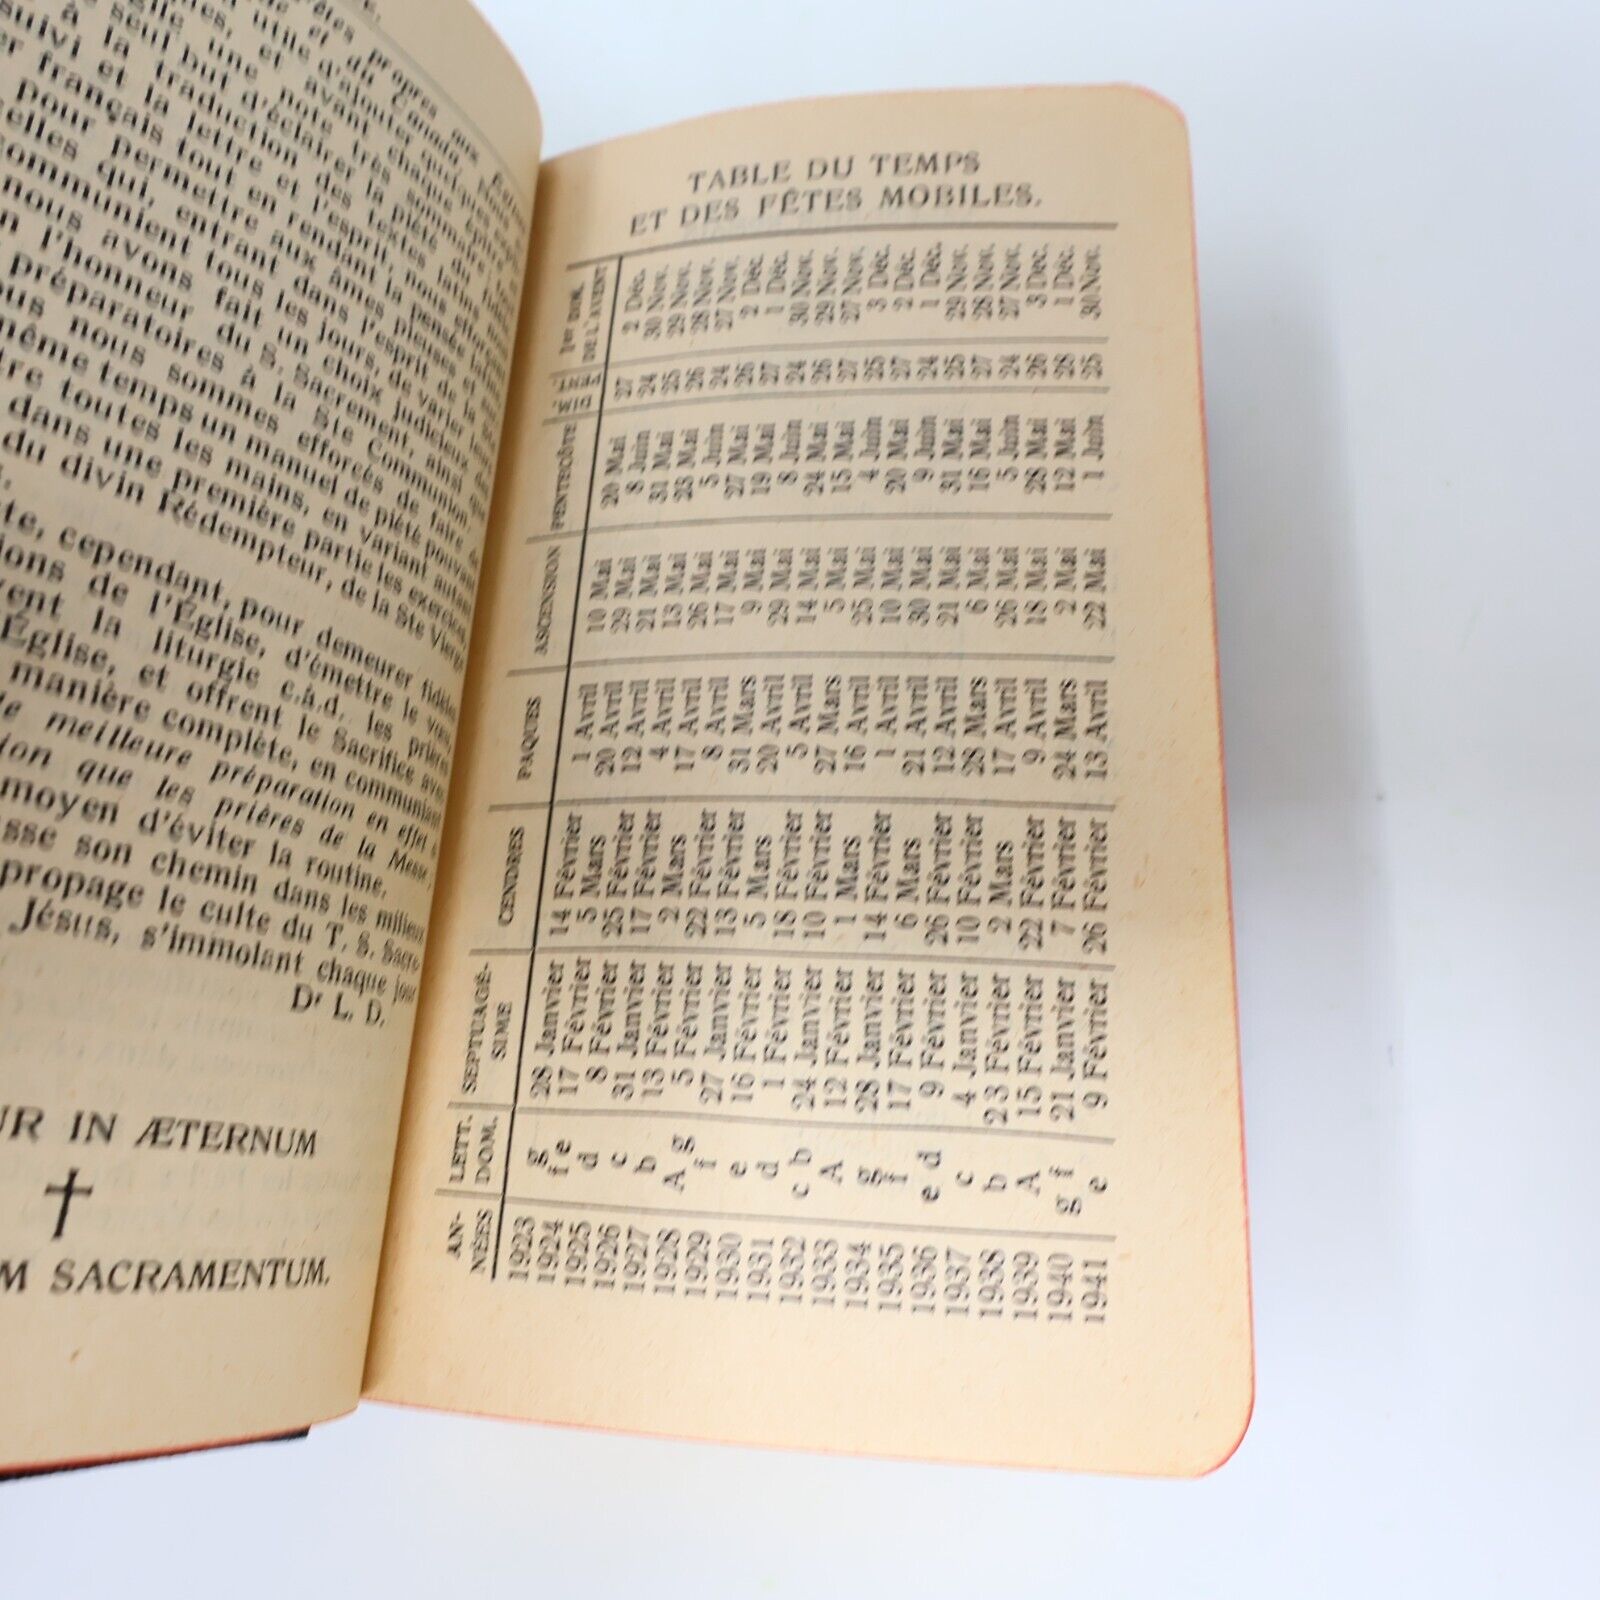 propres aux Églises
et du Canada. Nous
utile d'ajouter quelques
et avant chaque épître et
une note très sommaire, tout
à seul but d'éclairer la piété du
la traduction des textes latins, nous
suivi et la lettre et l'esprit, nous efforçant
français tout en rendant la pensée latine,
pour permettre aux âmes pieuses et
elles qui, entrant dans l'esprit de la Ste
communient tous les jours, de varier leurs
nous avons fait un choix judicieux
l'honneur du S. Sacrement, ainsi que des
préparatoires à la Ste Communion.
nous nous sommes efforcés de faire
même temps un manuel de piété pouvant
toutes les mains, en variant autant
dans une première partie les exercices,
du divin Rédempteur, de la Ste Vierge
cependant, pour demeurer fidèles
de l'Église, d'émettre le vœu,
la liturgie c.à.d. les prières
Église, et offrent le Sacrifice avec
manière complète, en communiant
meilleure préparation en effet à
que les prières de la Messe,
moyen d'éviter la routine.
son chemin dans les milieux
propage le culte du T. S. Sacre
Jésus, s'immolant chaque jour
Dr L. D.
UR IN ÆTERNUM
M SACRAMENTUM.
TABLE DU TEMPS
ET DES FÊTES MOBILES.
AN-NÉES LETT. DOM. SEPTUAGÉ-SIME CENDRES PAQUES ASCENSION PENTECÔTE DIM. PENT. 1er DIM. DE L'AVENT
1923 g 28 Janvier 14 Février 1 Avril 10 Mai 20 Mai 27 2 Déc.
1924 f e 17 Février 5 Mars 20 Avril 29 Mai 8 Juin 24 30 Nov.
1925 d 8 Février 25 Février 12 Avril 21 Mai 31 Mai 25 29 Nov.
1926 c 31 Janvier 17 Février 4 Avril 13 Mai 23 Mai 26 28 Nov.
1927 b 13 Février 2 Mars 17 Avril 26 Mai 5 Juin 24 27 Nov.
1928 A g 5 Février 22 Février 8 Avril 17 Mai 27 Mai 26 2 Déc.
1929 f 27 Janvier 13 Février 31 Mars 9 Mai 19 Mai 27 1 Déc.
1930 e 16 Février 5 Mars 20 Avril 29 Mai 8 Juin 24 30 Nov.
1931 d 1 Février 18 Février 5 Avril 14 Mai 24 Mai 26 29 Nov.
1932 c b 24 Janvier 10 Février 27 Mars 5 Mai 15 Mai 27 27 Nov.
1933 A 12 Février 1 Mars 16 Avril 25 Mai 4 Juin 25 3 Déc.
1934 g 28 Janvier 14 Février 1 Avril 10 Mai 20 Mai 27 2 Déc.
1935 f 17 Février 6 Mars 21 Avril 30 Mai 9 Juin 24 1 Déc.
1936 e d 9 Février 26 Février 12 Avril 21 Mai 31 Mai 25 29 Nov.
1937 c 4 Janvier 10 Février 28 Mars 6 Mai 16 Mai 27 28 Nov.
1938 b 23 Février 2 Mars 17 Avril 26 Mai 5 Juin 24 27 Nov.
1939 A 15 Février 22 Février 9 Avril 18 Mai 28 Mai 26 3 Déc.
1940 g f 21 Janvier 7 Février 24 Mars 2 Mai 12 Mai 28 1 Déc.
1941 e 9 Février 26 Février 13 Avril 22 Mai 1 Juin 25 30 Nov.